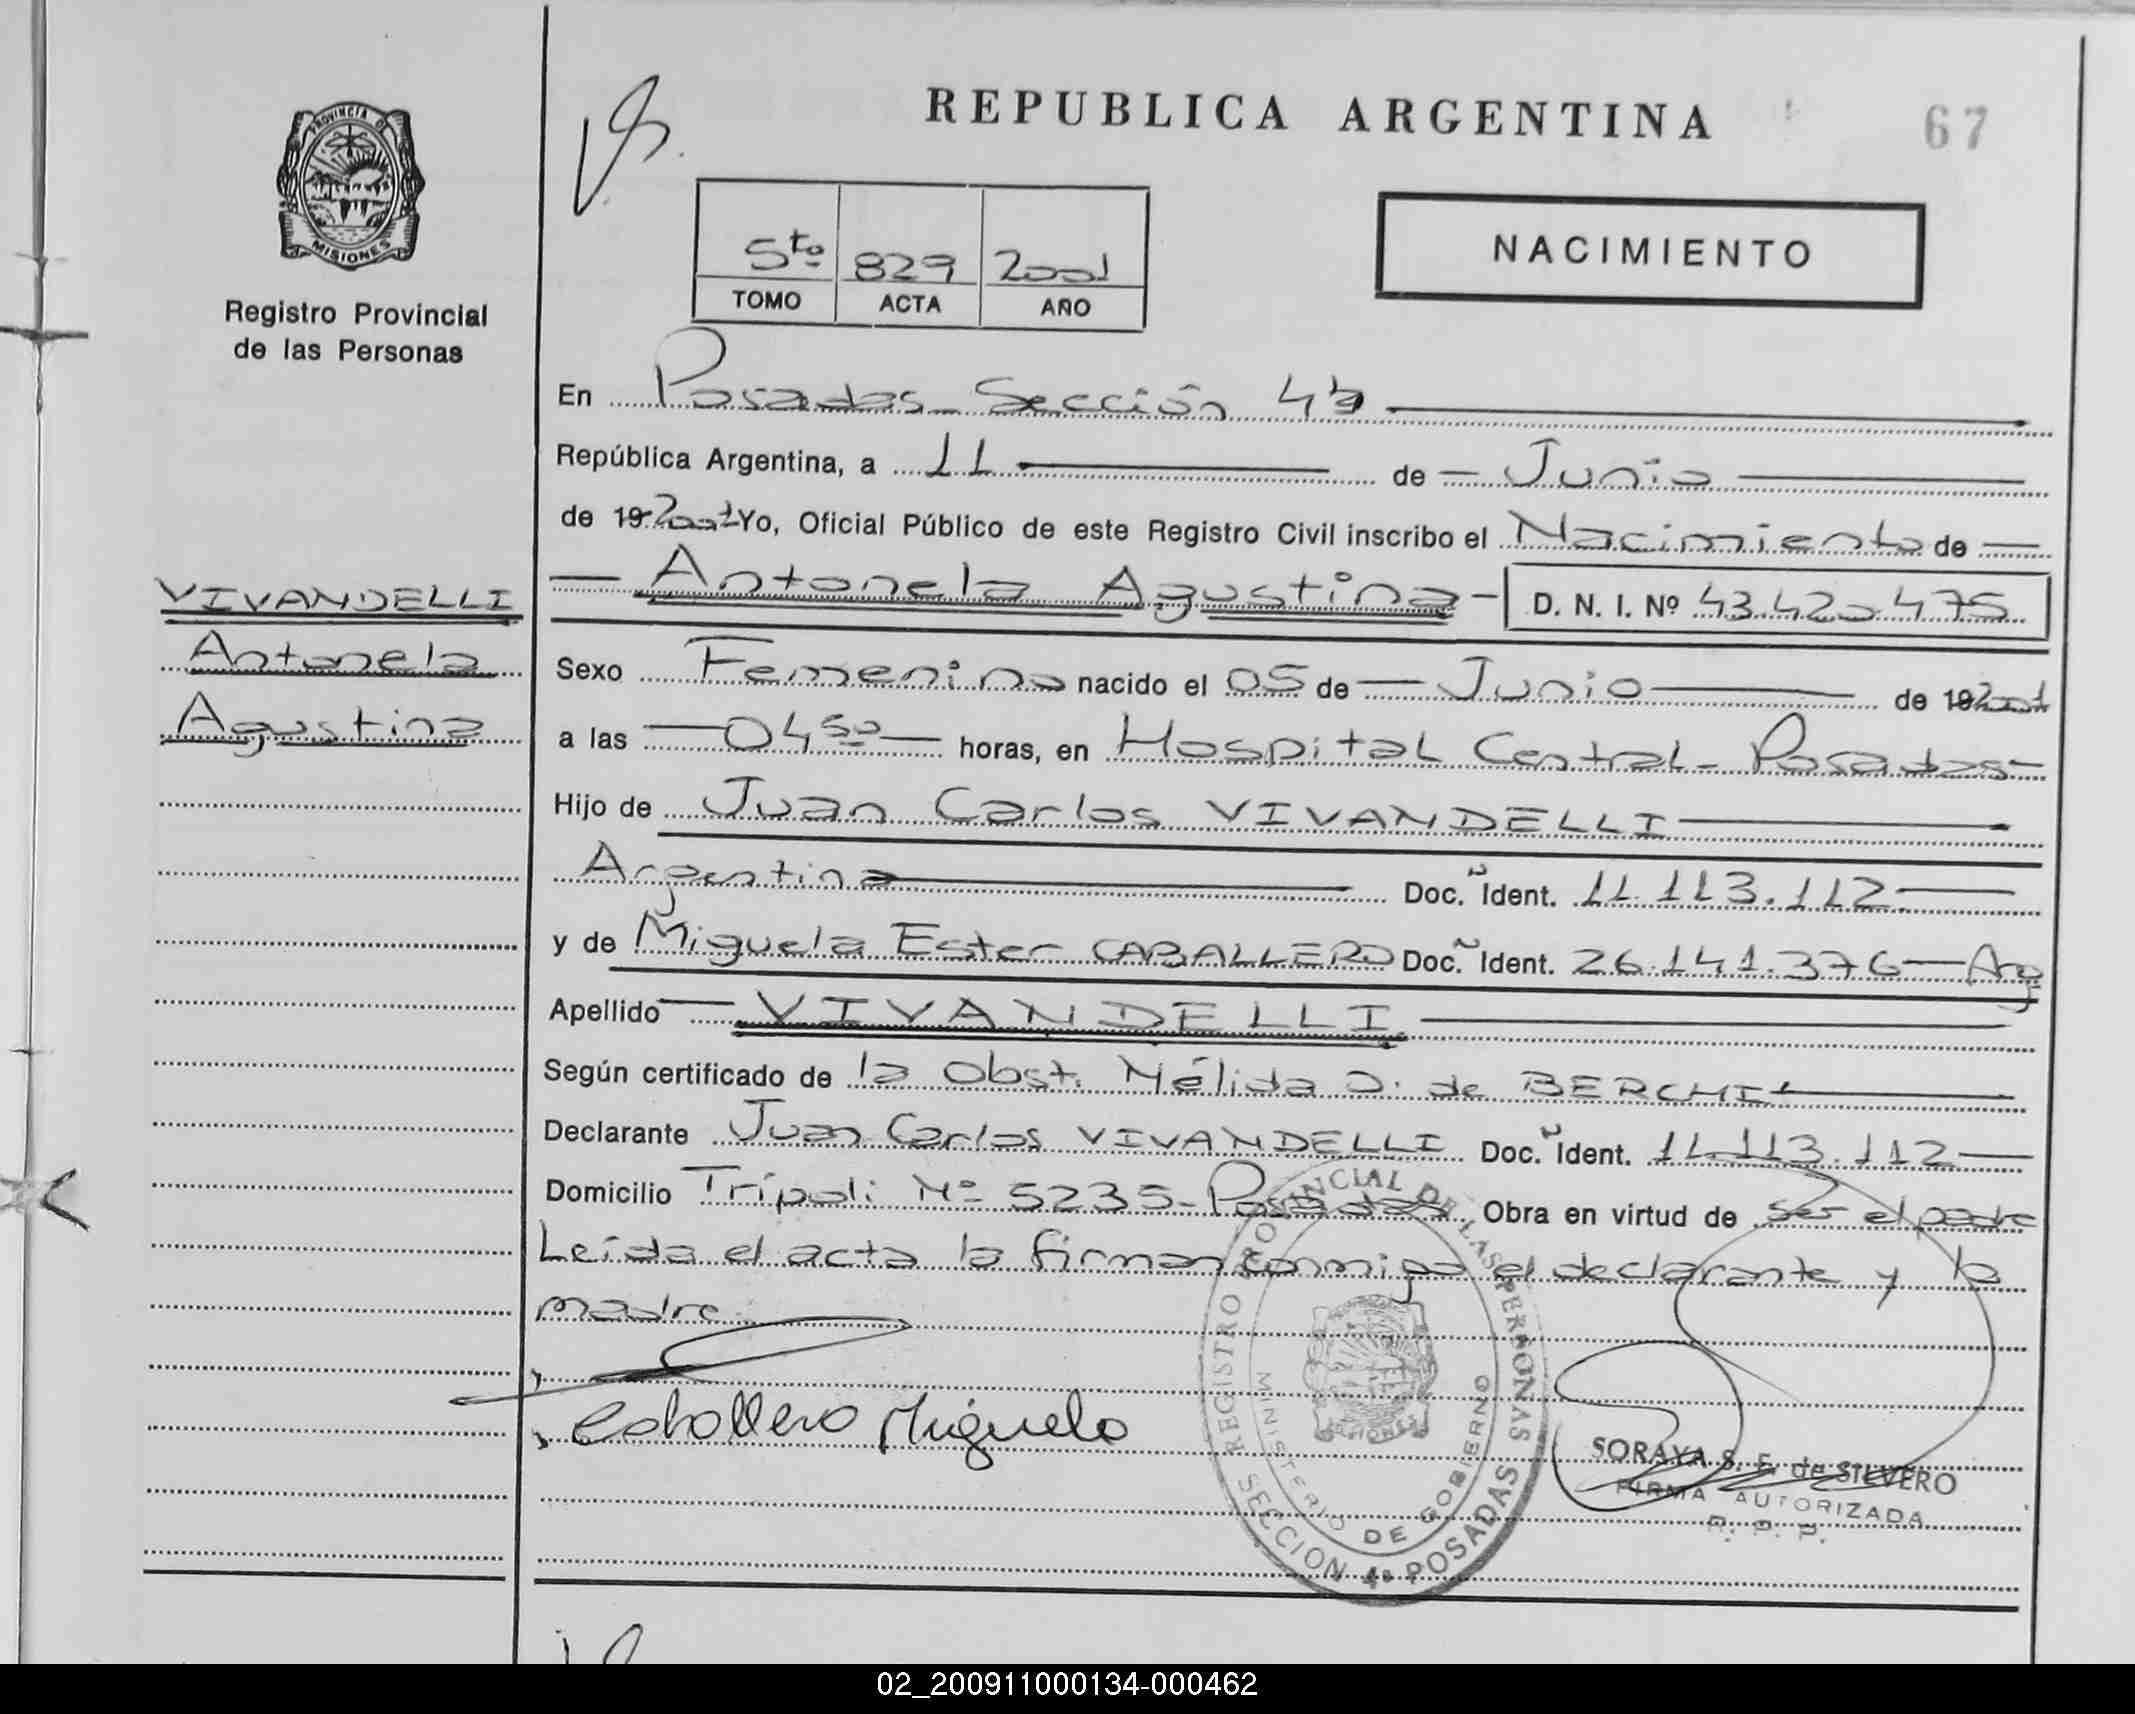 REPUBLICA ARGENTINA
67
PROVINCIA DE
MISIONES
Registro Provincial
de las Personas
5to 829 2001
TOMO ACTA AÑO
NACIMIENTO
En Posadas - Sección 4ta
República Argentina, a 11 de Junio
de 19 2001 Yo, Oficial Público de este Registro Civil inscribo el Nacimiento de
Antonela Agustina - D. N. I. Nº 43.420.475
VIVANDELLI
Antonela
Agustina
Sexo Femenino nacido el 05 de Junio de 19 2001
a las 04 50 horas, en Hospital Central - Posadas
Hijo de Juan Carlos VIVANDELLI
Argentina Doc. Ident. 11.113.112
y de Miguela Ester CABALLERO Doc. Ident. 26.141.376 - Arg
Apellido VIVANDELLI
Según certificado de la Obst. Nélida O. de BERCHI
Declarante Juan Carlos VIVANDELLI Doc. Ident. 11.113.112
Domicilio Trípoli Nº 5235 - Posadas Obra en virtud de ser el padre
Leída el acta la firman conmigo el declarante y la
madre
Caballero Miguela
REGISTRO PROVINCIAL DE LAS PERSONAS
MINISTERIO DE GOBIERNO
MISIONES
SECCION 4ª POSADAS
SORAYA S. F. de SILVERO
FIRMA AUTORIZADA
R. P. P.
02_200911000134-000462